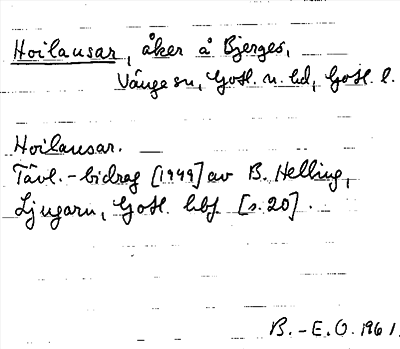 Hoilausar, åker å Bjerges,
Vänge sn, Gotl. n. hd, Gotl. l.
Hoilausar.
Tävl.-bidrag [1949] av B. Helling,
Ljugarn, Gotl. hbf. [s. 20].
B.-E.O. 1961.